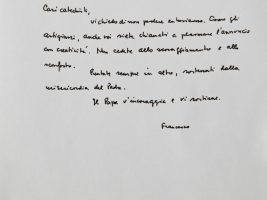 Cari catechisti,
vi chiedo di non perdere entusiasmo. Come gli
artigiani, anche voi siete chiamati a plasmare l'annuncio
con creatività. Non cedete allo scoraggiamento e allo
sconforto.
Puntate sempre in alto, sostenuti dalla
misericordia del Padre.
Il Papa v'incoraggia e vi sostiene.
Francesco